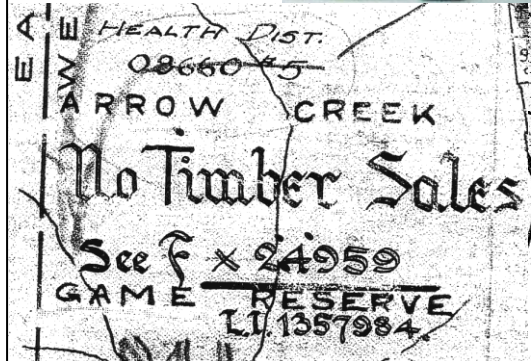 HEALTH DIST.
08660 #5
ARROW CREEK
No Timber Sales
See F x 24959
GAME RESERVE
L.I. 1357984.